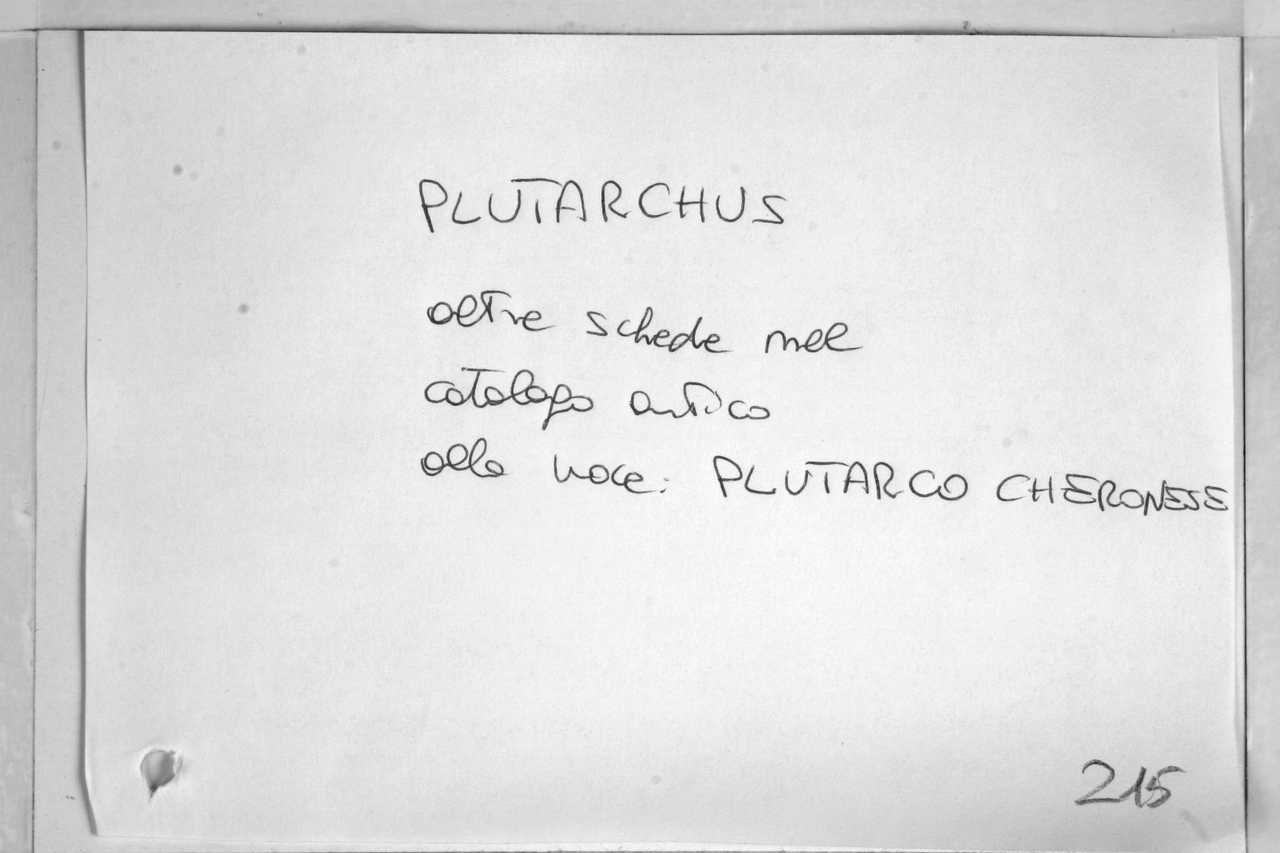 PLUTARCHUS
altre schede nel
catalogo antico
alla voce: PLUTARCO CHERONESE
215